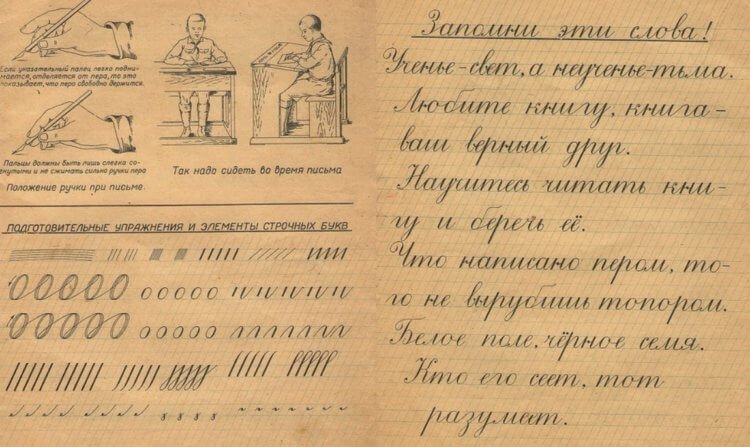 Если указательный палец легко подни-
мается, отделяется от пера, то это
показывает, что перо свободно держится.
Пальцы должны быть лишь слегка со-
гнутыми и не сжимать сильно ручки пера
Положение ручки при письме.
Так надо сидеть во время письма
ПОДГОТОВИТЕЛЬНЫЕ УПРАЖНЕНИЯ И ЭЛЕМЕНТЫ СТРОЧНЫХ БУКВ
Запомни эти слова!
Ученье-свет, а неученье-тьма.
Любите книгу, книга-
ваш верный друг.
Научитесь читать кни-
гу и беречь её.
Что написано пером, то-
го не вырубишь топором.
Белое поле, чёрное семя.
Кто его сеет, тот
разумеет.